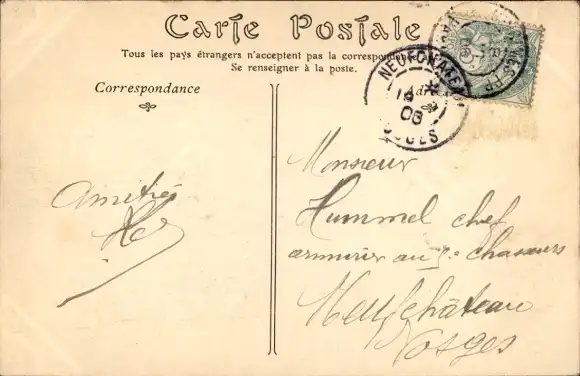 Carte Postale
Tous les pays étrangers n'acceptent pas la correspondance au
Se renseigner à la poste.
Correspondance
Adre
NEUFCHATEAU
1908
VOSGES
Amitiés
Monsieur
Hummel chef
armurier au chasseurs
Neufchâteau
Vosges